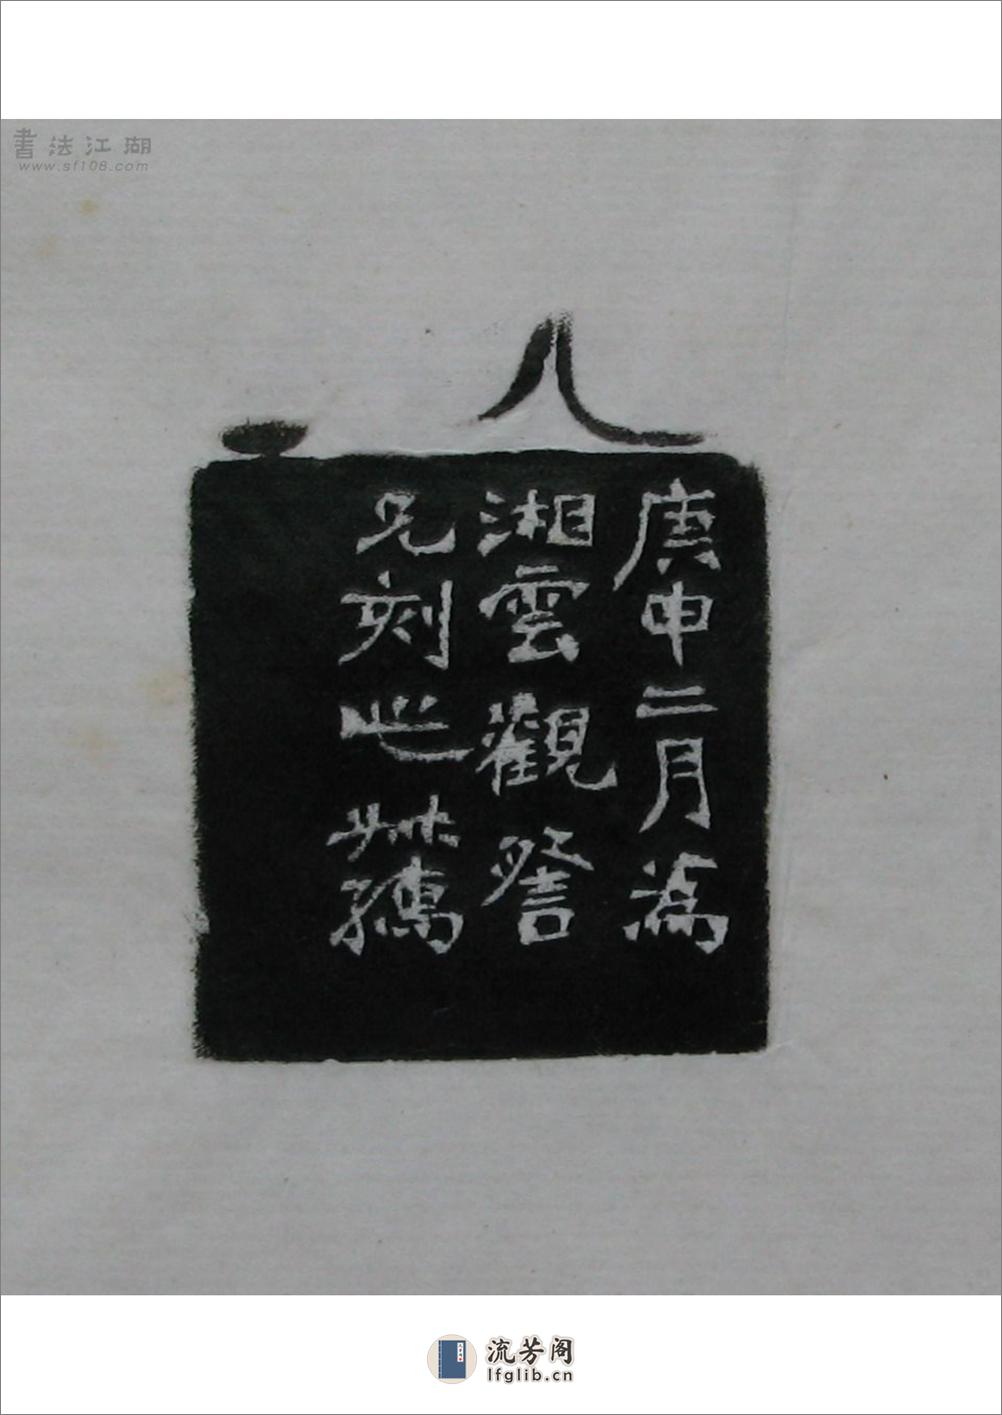 書法江湖
www.sf108.com
庚申二月為
湘雲觀詧
兄刻之
流芳阁
lfglib.cn